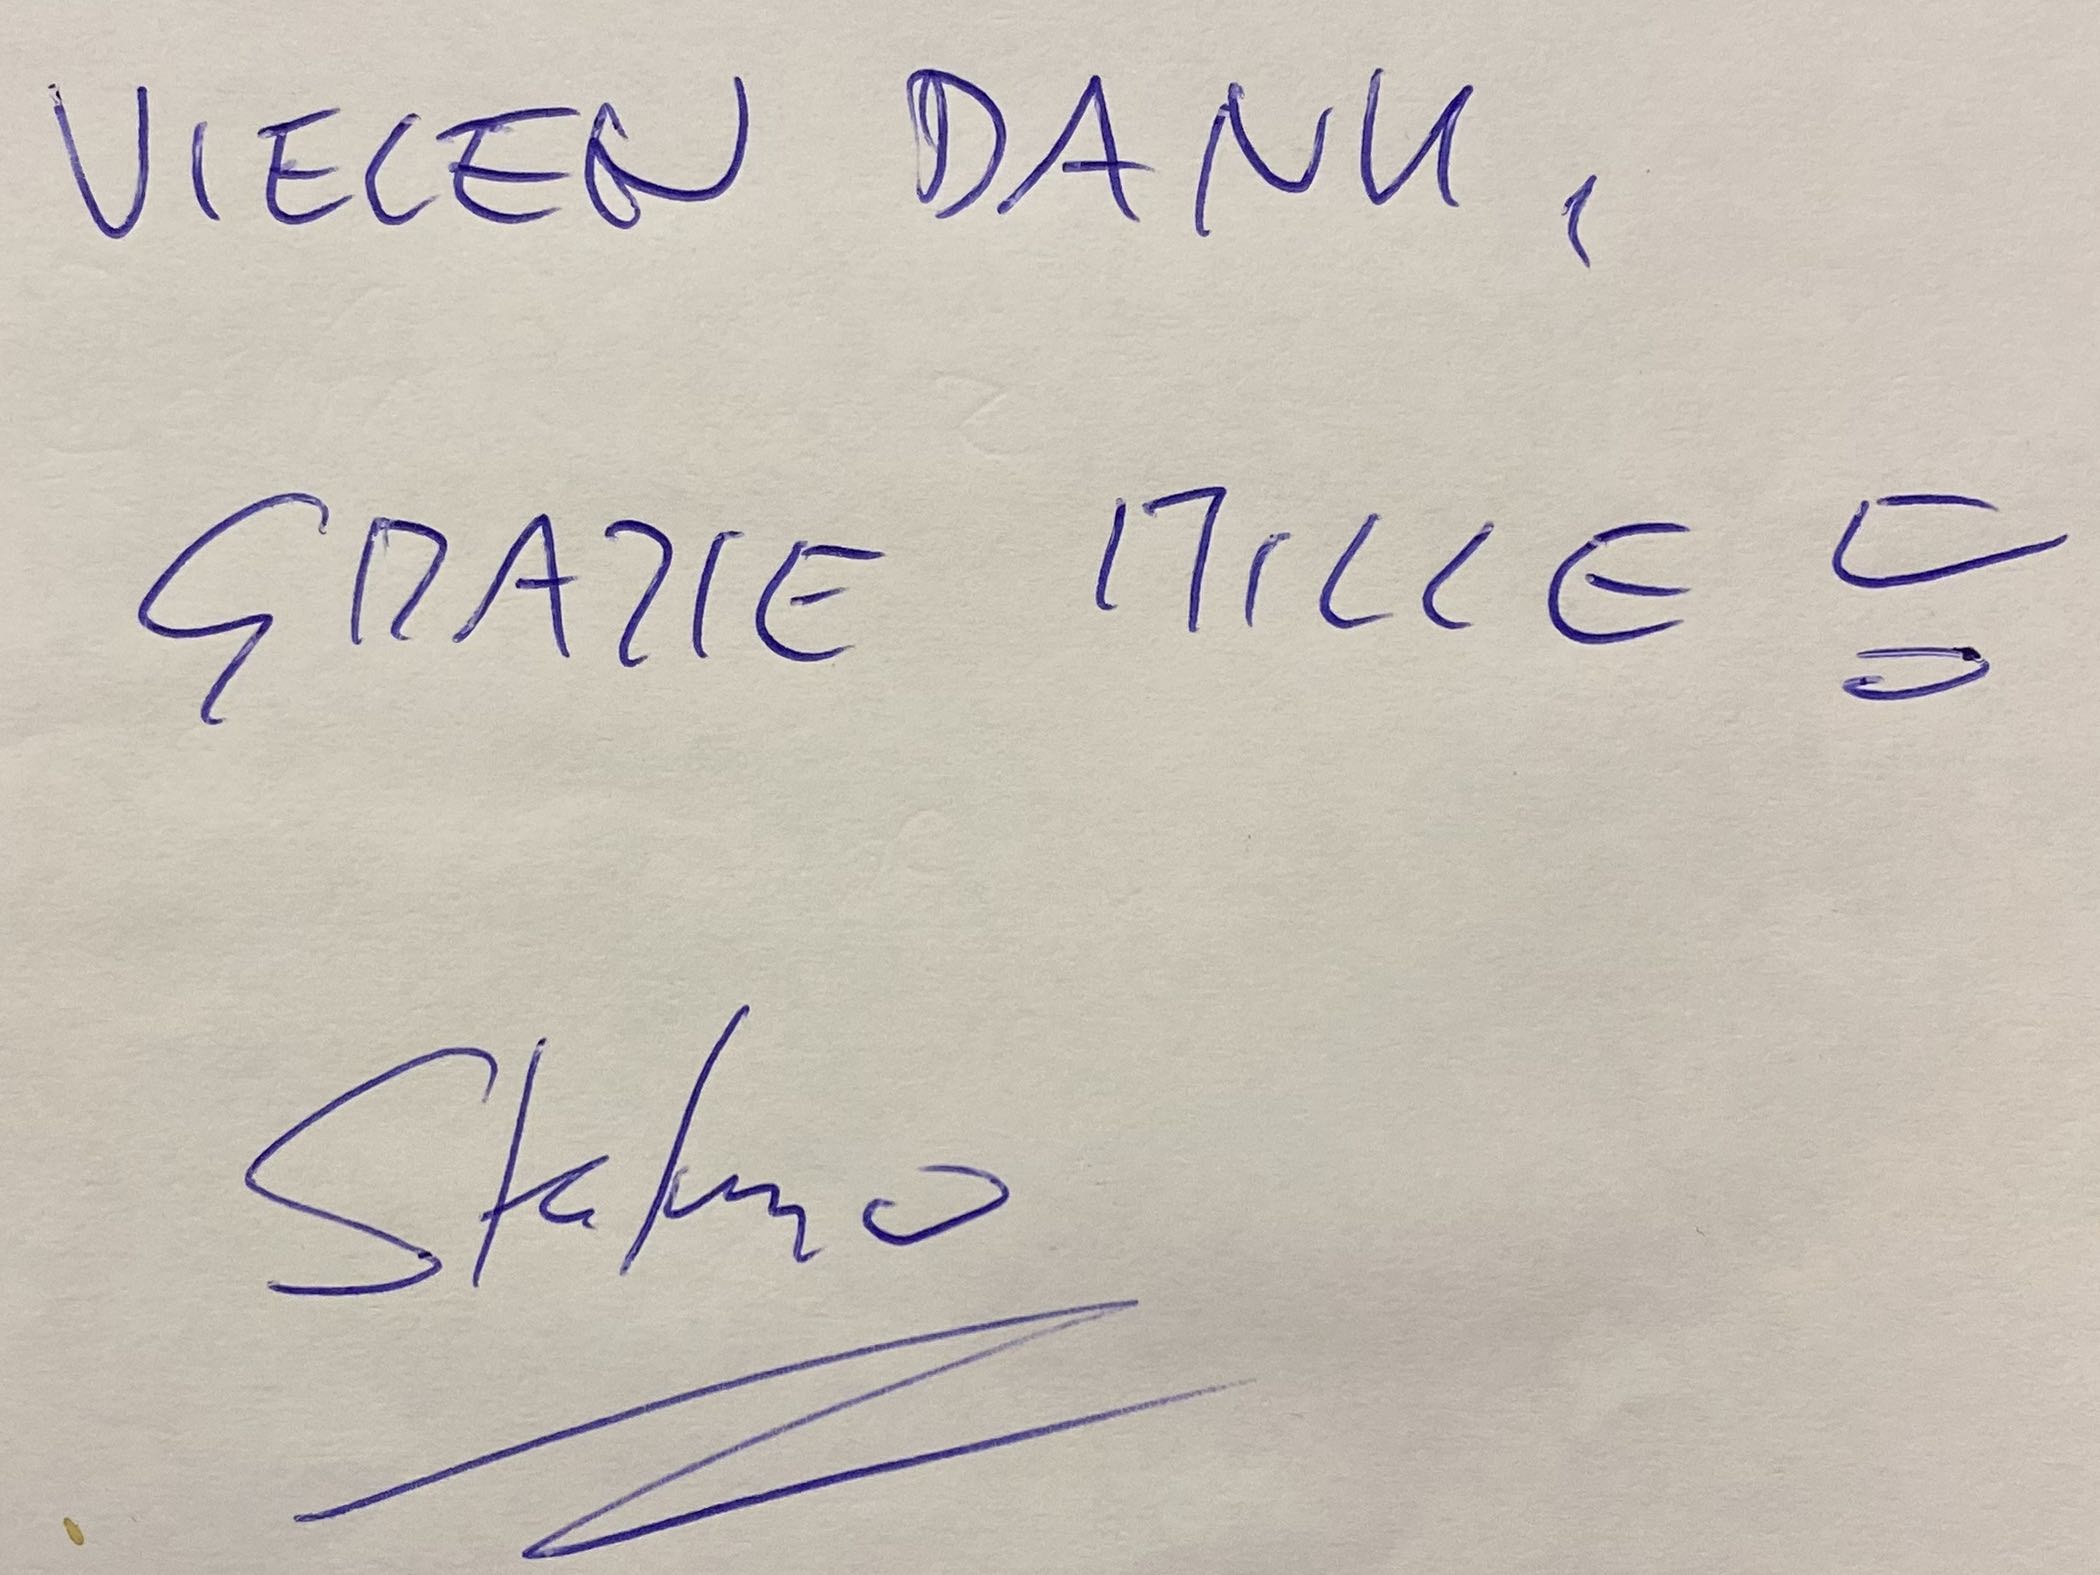 VIELEN DANK,
GRAZIE MILLE